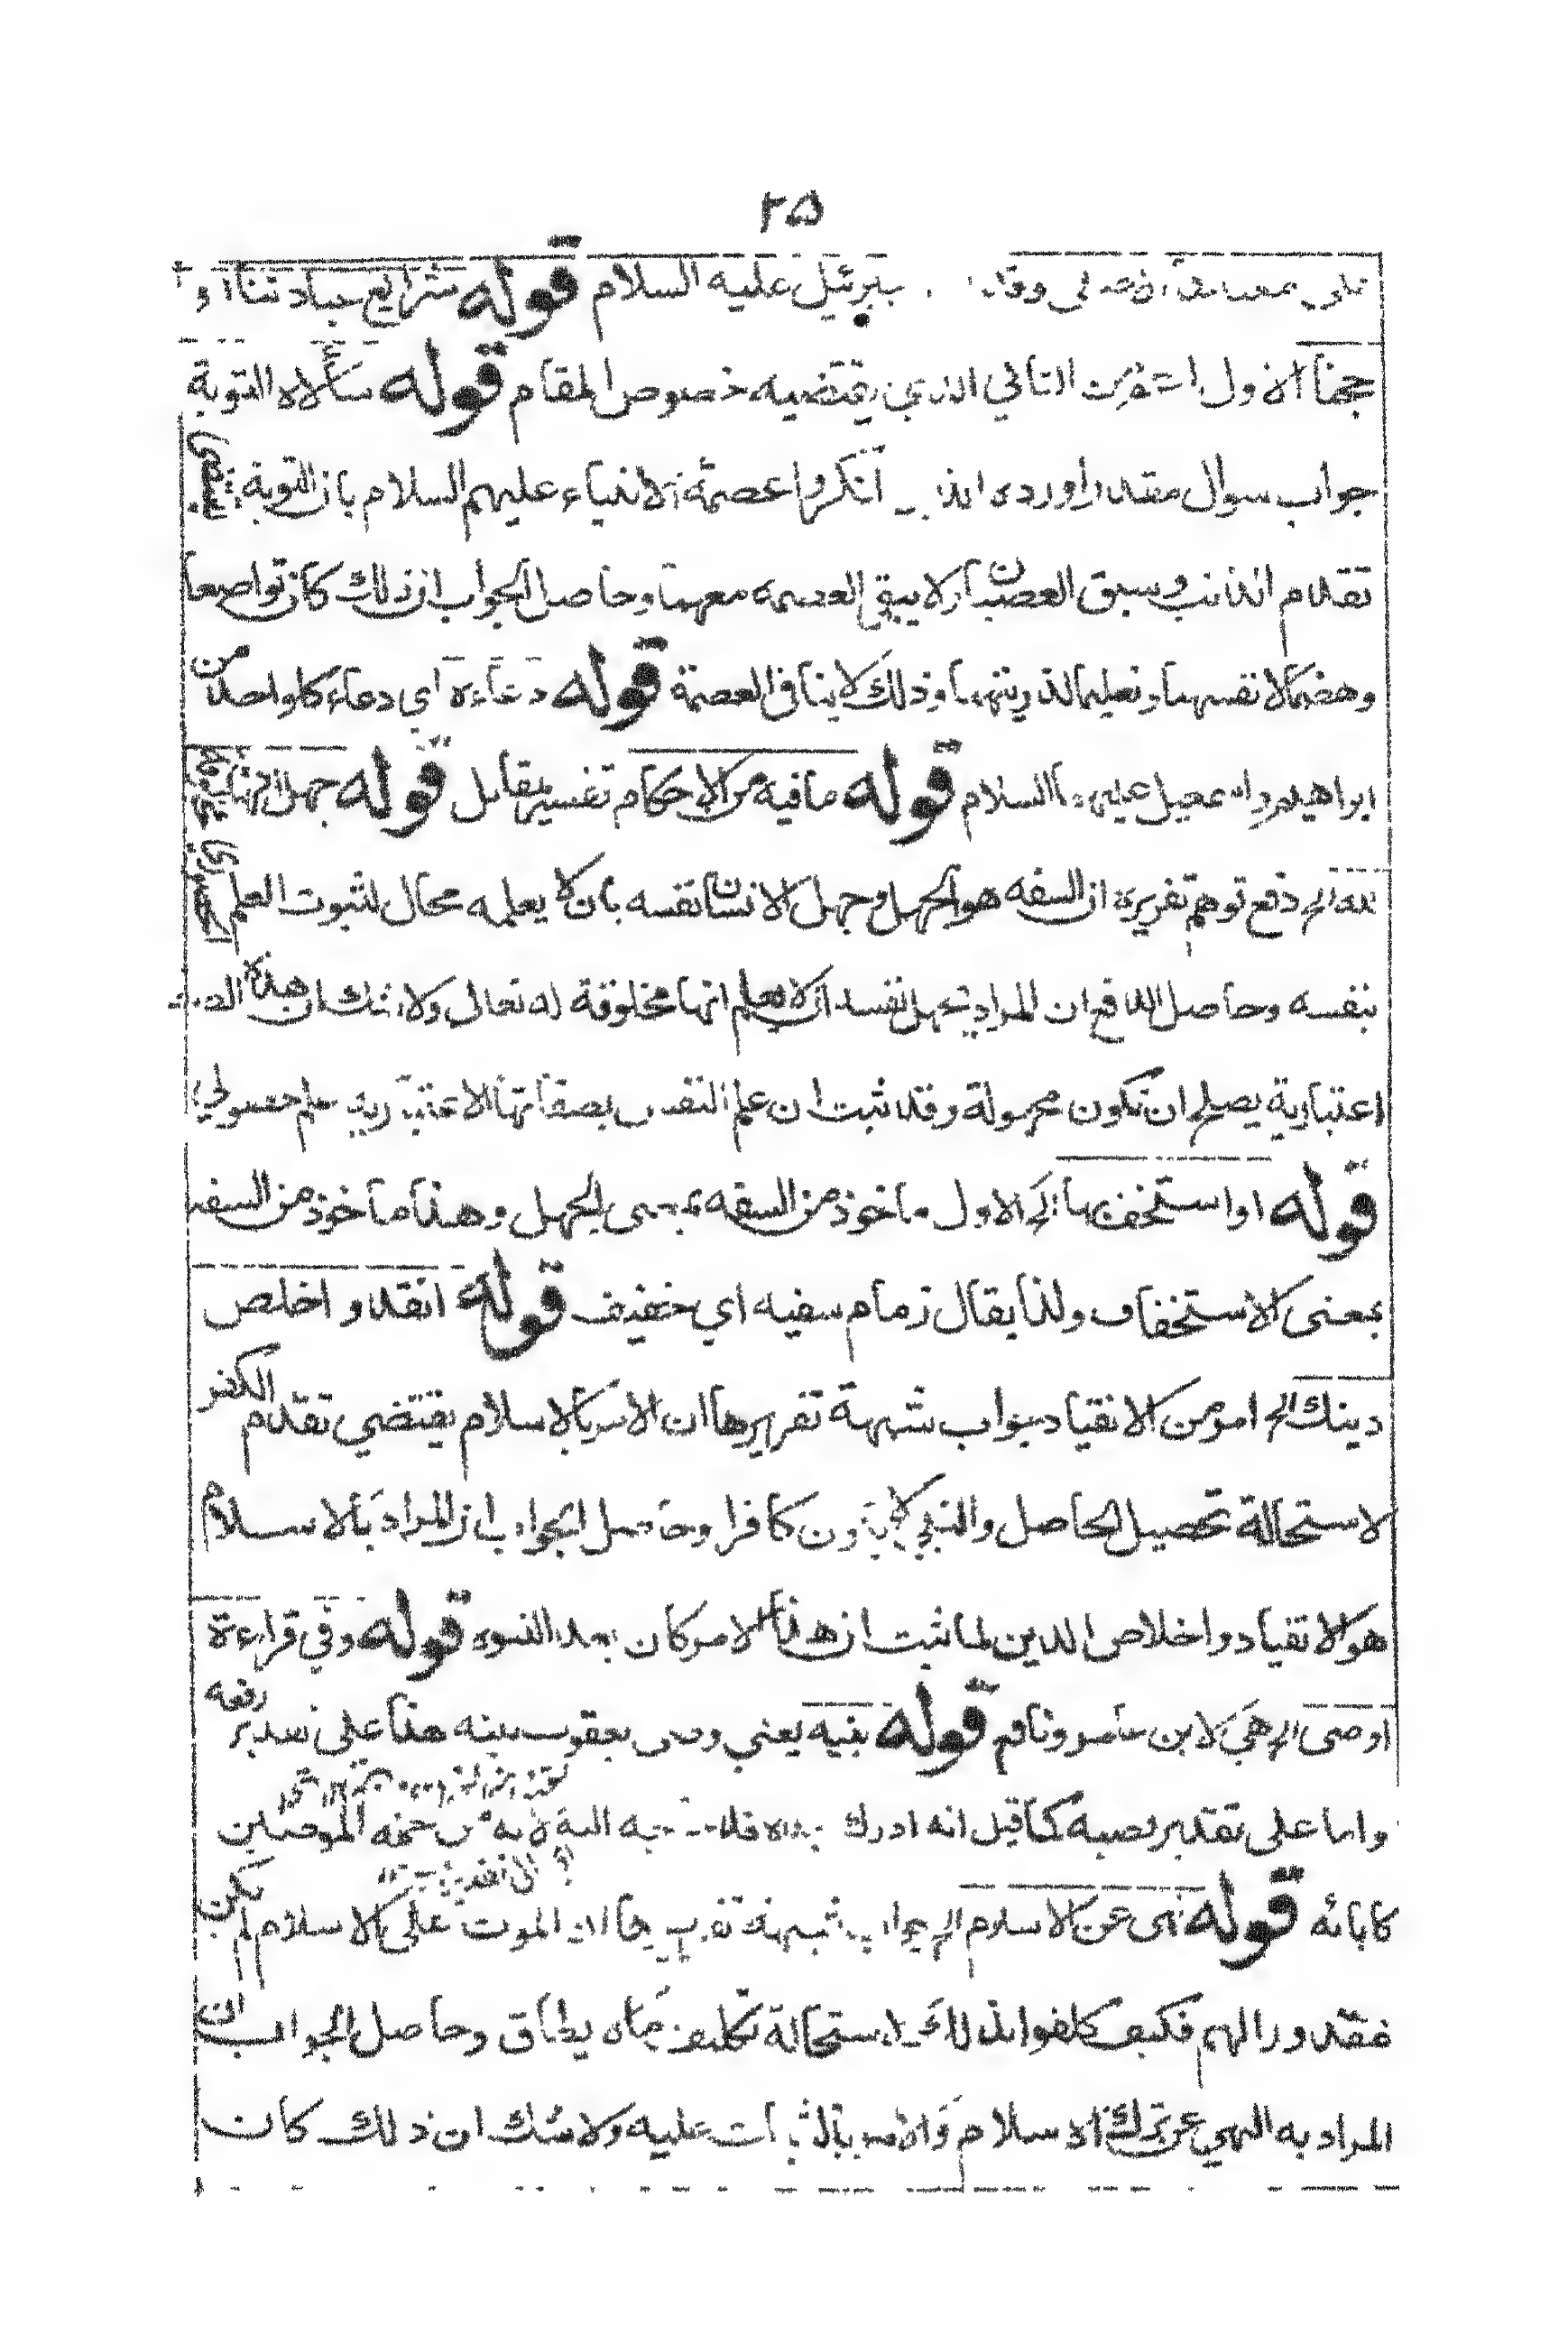 ٢٥
على وقد جبرئيل عليه السلام قوله شرائع عبادتنا او
حجنا الاول استغرق الثاني الذي يقتضيه خصوص المقام قوله سألاه التوبة
جواب سوال مقدر اورده الذين انكروا عصمة الانبياء عليهم السلام بان التوبة تقتضي
تقدم الذنب وسبق العصيان اذ لا يبقى العصمة معهما وحاصل الجواب ان ذلك كان تواضعا
وهضما لانفسهما وتعليما لذريتهما وذلك لا ينافي العصمة قوله دعاءه اي دعاء كل واحد من
ابراهيم واسمعيل عليهما السلام قوله ما فيه من الاحكام تفسير لمقابل قوله جهل انها مخلوقة
لله الخ دفع توهم تقريره ان السفه هو الجهل وجهل الانسان نفسه بان لا يعلمه محال لثبوت العلم الحضوري
بنفسه وحاصل الدفع ان المراد بجهل نفسه ان لا يعلم انها مخلوقة له تعالى ولا شك ان هذه
اعتبارية يصلح ان تكون مجهولة وقد ثبت ان علم النفس بصفاتها الاعتبارية علم حصولي
قوله او استخف بها الخ الاول ماخوذ من السفه بمعنى الجهل وهذا ماخوذ من السفه
بمعنى الاستخفاف ولذا يقال زمام سفيه اي خفيف قوله انقد او اخلص
دينك الخ امر من الانقياد جواب شبهة تقريرها ان الامر بالاسلام يقتضي تقدم الكفر
لاستحالة تحصيل الحاصل والنبي لا يكون كافرا وحاصل الجواب ان المراد بالاسلام
هو الانقياد واخلاص الدين لما ثبت ان هذا الامر كان بعد النبوة قوله وفي قراءة
اوصى الخ هي لابن عامر ونافع قوله بنيه يعني وصى يعقوب بنيه هذا على تقدير رفعه
واما على تقدير نصبه كما قيل انه ادرك جده
كابائه قوله نهى عن الاسلام الخ جواب شبهة تقريرها ان الموت على الاسلام لم يكن
مقدورا لهم فكيف كلفوا بذلك لاستحالة تكليف ما لا يطاق وحاصل الجواب ان
المراد به النهي عن ترك الاسلام والامر بالثبات عليه ولا شك ان ذلك كان